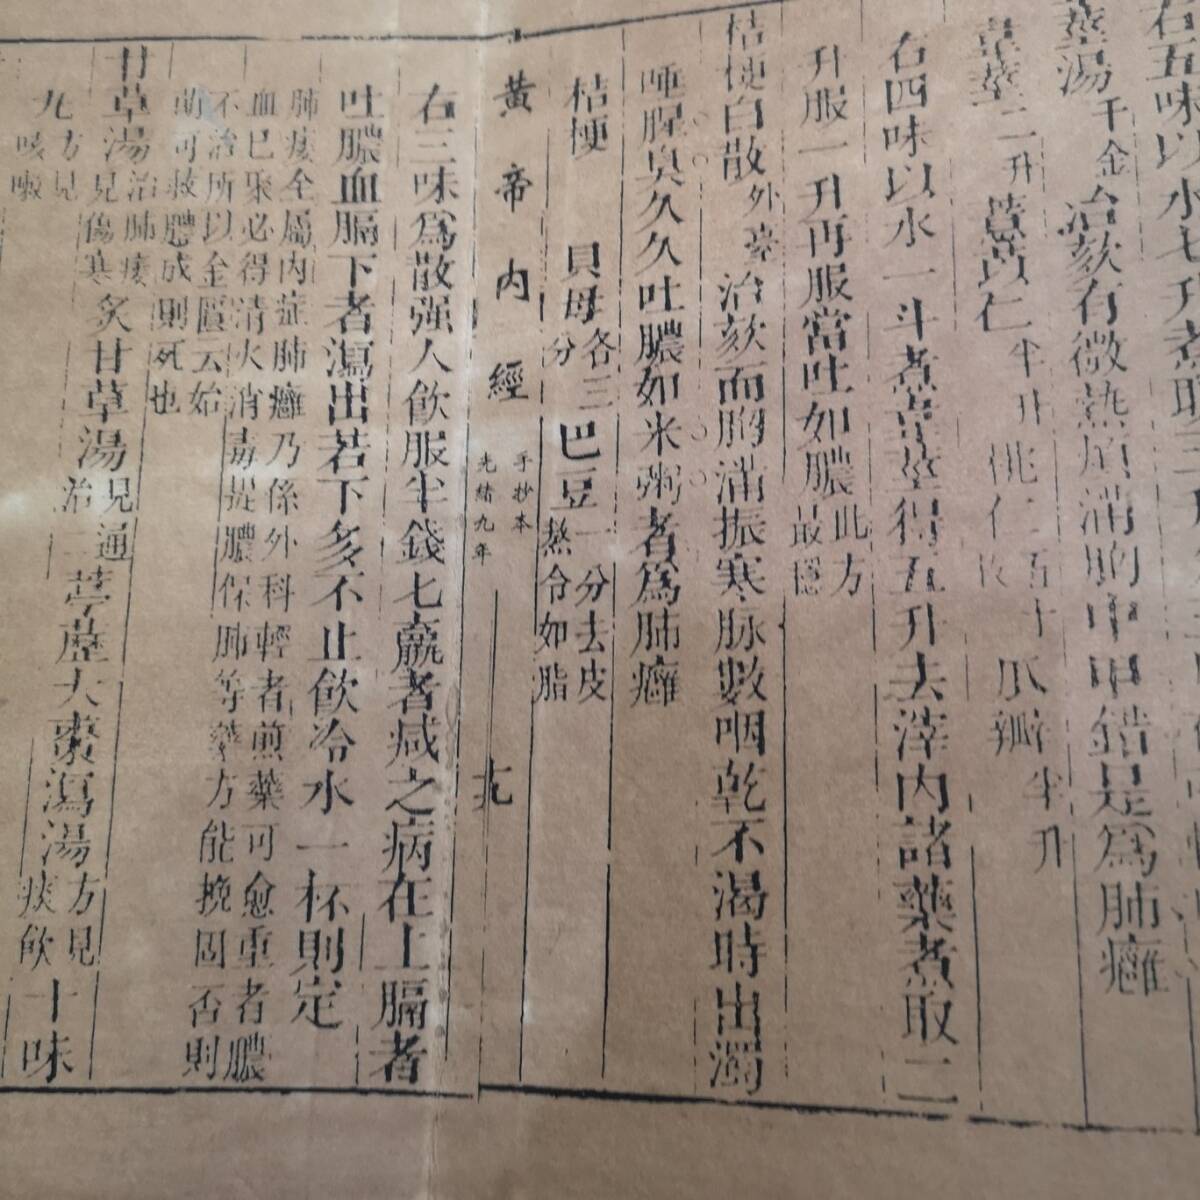 右五味以水七升煮取三升
葦莖湯千金治欬有微熱煩滿胸中甲錯是爲肺癰
葦莖二升薏苡仁半升桃仁五十枚瓜瓣半升
右四味以水一斗煮葦莖得五升去滓內諸藥煮取二
升服一升再服當吐如膿此方最穩
桔梗白散外臺治欬而胸滿振寒脉數咽乾不渴時出濁
唾腥臭久久吐膿如米粥者爲肺癰
桔梗 貝母各三分巴豆一分去皮熬令如脂
黃帝內經手抄本光緒九年
右三味爲散强人飲服半錢七羸者减之病在上膈者
吐膿血膈下者瀉出若下多不止飲冷水一杯則定
肺痿全屬內症肺癰乃係外科輕者煎藥可愈重者膿
血已聚必得清火消毒提膿保肺等藥方能挽回否則
不治所以金匱云始
萌可救膿成則死也
甘草湯治肺痿見傷寒炙甘草湯見通治葶藶大棗瀉湯方見痰飲十味
方見咳嗽